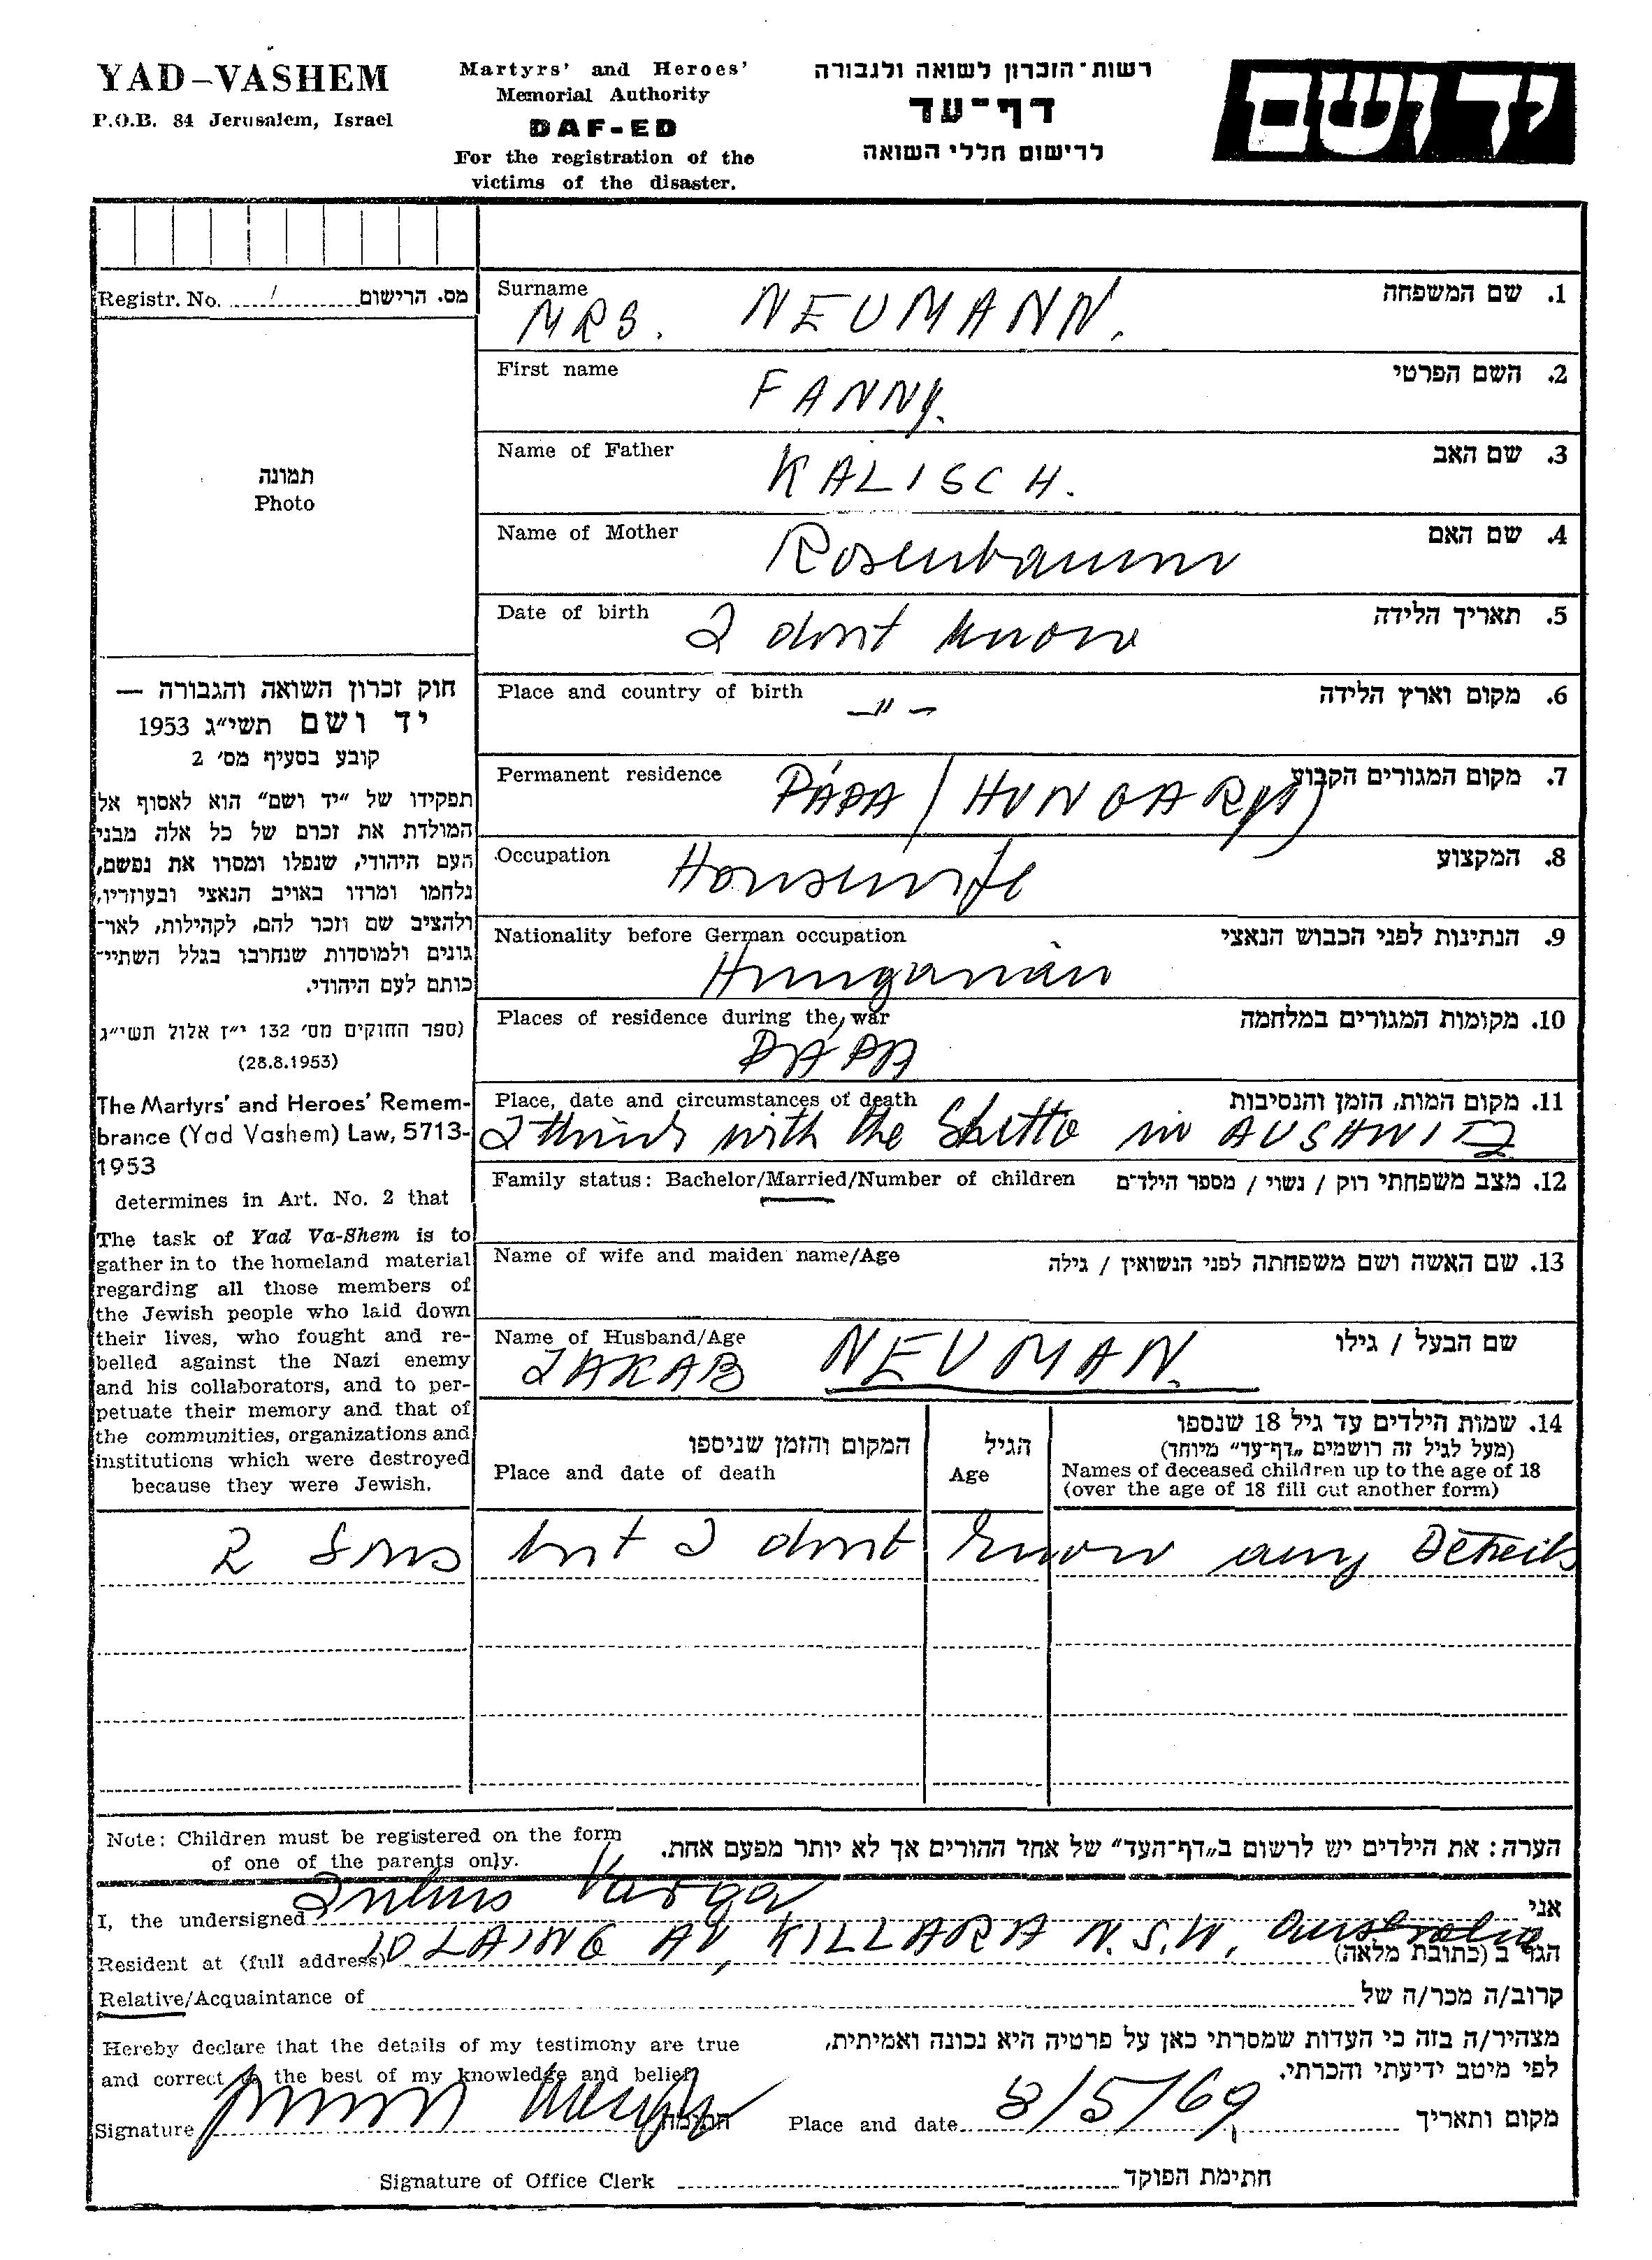 YAD-VASHEM
P.O.B. 84 Jerusalem, Israel
Martyrs' and Heroes'
Memorial Authority
DAF-ED
For the registration of the
victims of the disaster.
רשות-הזכרון לשואה ולגבורה
דף-עד
לרישום חללי השואה
יד ושם
Registr. No. / מס. הרישום
תמונה
Photo
חוק זכרון השואה והגבורה —
יד ושם תשי״ג 1953
קובע בסעיף מס׳ 2
תפקידו של ״יד ושם״ הוא לאסוף אל
המולדת את זכרם של כל אלה מבני
העם היהודי, שנפלו ומסרו את נפשם,
נלחמו ומרדו באויב הנאצי ובעוזריו,
ולהציב שם וזכר להם, לקהילות, לאר-
גונים ולמוסדות שנחרבו בגלל השתיי-
כותם לעם היהודי.
(ספר החוקים מס׳ 132 י״ז אלול תשי״ג
(28.8.1953)
The Martyrs' and Heroes' Remem-
brance (Yad Vashem) Law, 5713-
1953
determines in Art. No. 2 that
The task of Yad Va-Shem is to
gather in to the homeland material
regarding all those members of
the Jewish people who laid down
their lives, who fought and re-
belled against the Nazi enemy
and his collaborators, and to per-
petuate their memory and that of
the communities, organizations and
institutions which were destroyed
because they were Jewish.
Surname 1. שם המשפחה
MRS. NEUMANN.
First name 2. השם הפרטי
FANNY.
Name of Father 3. שם האב
KALISCH.
Name of Mother 4. שם האם
Rosenbaum
Date of birth 5. תאריך הלידה
I dont know
Place and country of birth 6. מקום וארץ הלידה
—"—
Permanent residence 7. מקום המגורים הקבוע
PÁPA (HUNGARY)
Occupation 8. המקצוע
Housewife
Nationality before German occupation 9. הנתינות לפני הכבוש הנאצי
Hungarian
Places of residence during the war 10. מקומות המגורים במלחמה
PÁPA
Place, date and circumstances of death 11. מקום המות, הזמן והנסיבות
I think with the Ghetto in AUSHWITZ
Family status: Bachelor/Married/Number of children 12. מצב משפחתי רוק / נשוי / מספר הילדים
Name of wife and maiden name/Age 13. שם האשה ושם משפחתה לפני הנשואין / גילה
Name of Husband/Age שם הבעל / גילו
JAKAB NEUMAN.
14. שמות הילדים עד גיל 18 שנספו
(מעל לגיל זה רושמים ״דף-עד״ מיוחד)
Names of deceased children up to the age of 18
(over the age of 18 fill out another form)
הגיל
Age
המקום והזמן שניספו
Place and date of death
2 Sons but I dont know any Details
Note: Children must be registered on the form
of one of the parents only.
הערה: את הילדים יש לרשום ב״דף-העד״ של אחד ההורים אך לא יותר מפעם אחת.
I, the undersigned Julius Varga אני
Resident at (full address) 10 LAING AV, KILLARA N.S.W. Australia הגר ב (כתובת מלאה)
Relative/Acquaintance of קרוב/ה מכר/ה של
Hereby declare that the details of my testimony are true
and correct to the best of my knowledge and belief
מצהיר/ה בזה כי העדות שמסרתי כאן על פרטיה היא נכונה ואמיתית,
לפי מיטב ידיעתי והכרתי.
Signature חתימה Place and date 8/5/69 מקום ותאריך
Signature of Office Clerk חתימת הפוקד